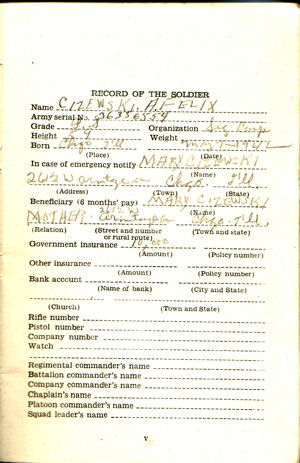 RECORD OF THE SOLDIER
Name CIZEWSKI, A. FELIX
Army serial No. 36356554
Grade Organization Sig Corp
Height 5-9 Weight
Born Chgo Ill
(Place) (Date)
In case of emergency notify MARY CIZEWSKI
(Name)
2612 W Chgo. Ill.
(Address) (Town) (State)
Beneficiary (6 months' pay) MARY CIZEWSKI
(Name)
2612 W
MOTHER Chgo. Ill.
(Relation) (Street and number or rural route) (Town and state)
Government insurance 10,000
(Amount) (Policy number)
Other insurance
(Amount) (Policy number)
Bank account
(Name of bank) (City and State)
(Church) (Town and State)
Rifle number
Pistol number
Company number
Watch
Regimental commander's name
Battalion commander's name
Company commander's name
Chaplain's name
Platoon commander's name
Squad leader's name
v